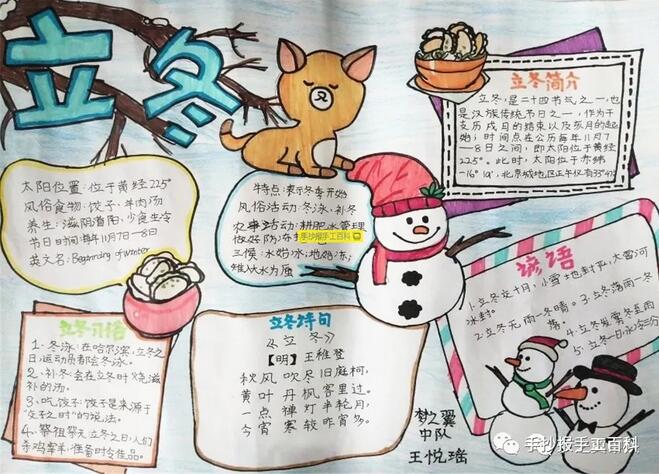 立冬
太阳位置:位于黄经225°
风俗食物:饺子、羊肉汤
养生:滋阴潜阳,少食生冷
节日时间:每年11月7日—8日
英文名:Beginning of winter
特点:表示冬季开始
风俗活动:冬泳、补冬
农事活动:耕肥水管理
做好防冻
三候:水始冰;地始冻;
雉入大水为蜃
手抄报手工百科
立冬简介
立冬,是二十四节气之一,也
是汉族传统节日之一,作为干
支历戌月的结束以及亥月的起
始;时间点在公历每年11月7
—8日之间,即太阳位于黄经
225°。此时,太阳位于赤纬
-16°19′,北京城地区正午仅有33°47′
谚语
1.立冬交十月,小雪地封严,大雪河
冰封。
2.立冬无雨一冬晴。
3.立冬落雨一冬
落。
4.立冬发雾冬至雨
5.立冬一日,水冷三分
立冬习俗
1.冬泳:在哈尔滨,立冬之
日,运动员都会冬泳。
2.补冬:会在立冬时烧滋
补的汤。
3.吃饺子:饺子是来源于
“交子之时”的说法。
4.祭祖祭天:立冬之日,人们
杀鸡宰羊,准备时令佳品。
立冬诗句
《立冬》
【明】王稚登
秋风吹尽旧庭柯,
黄叶丹枫客里过。
一点禅灯半轮月,
今宵寒较昨宵多。
梦之翼
中队
王悦瑶
手抄报手工百科